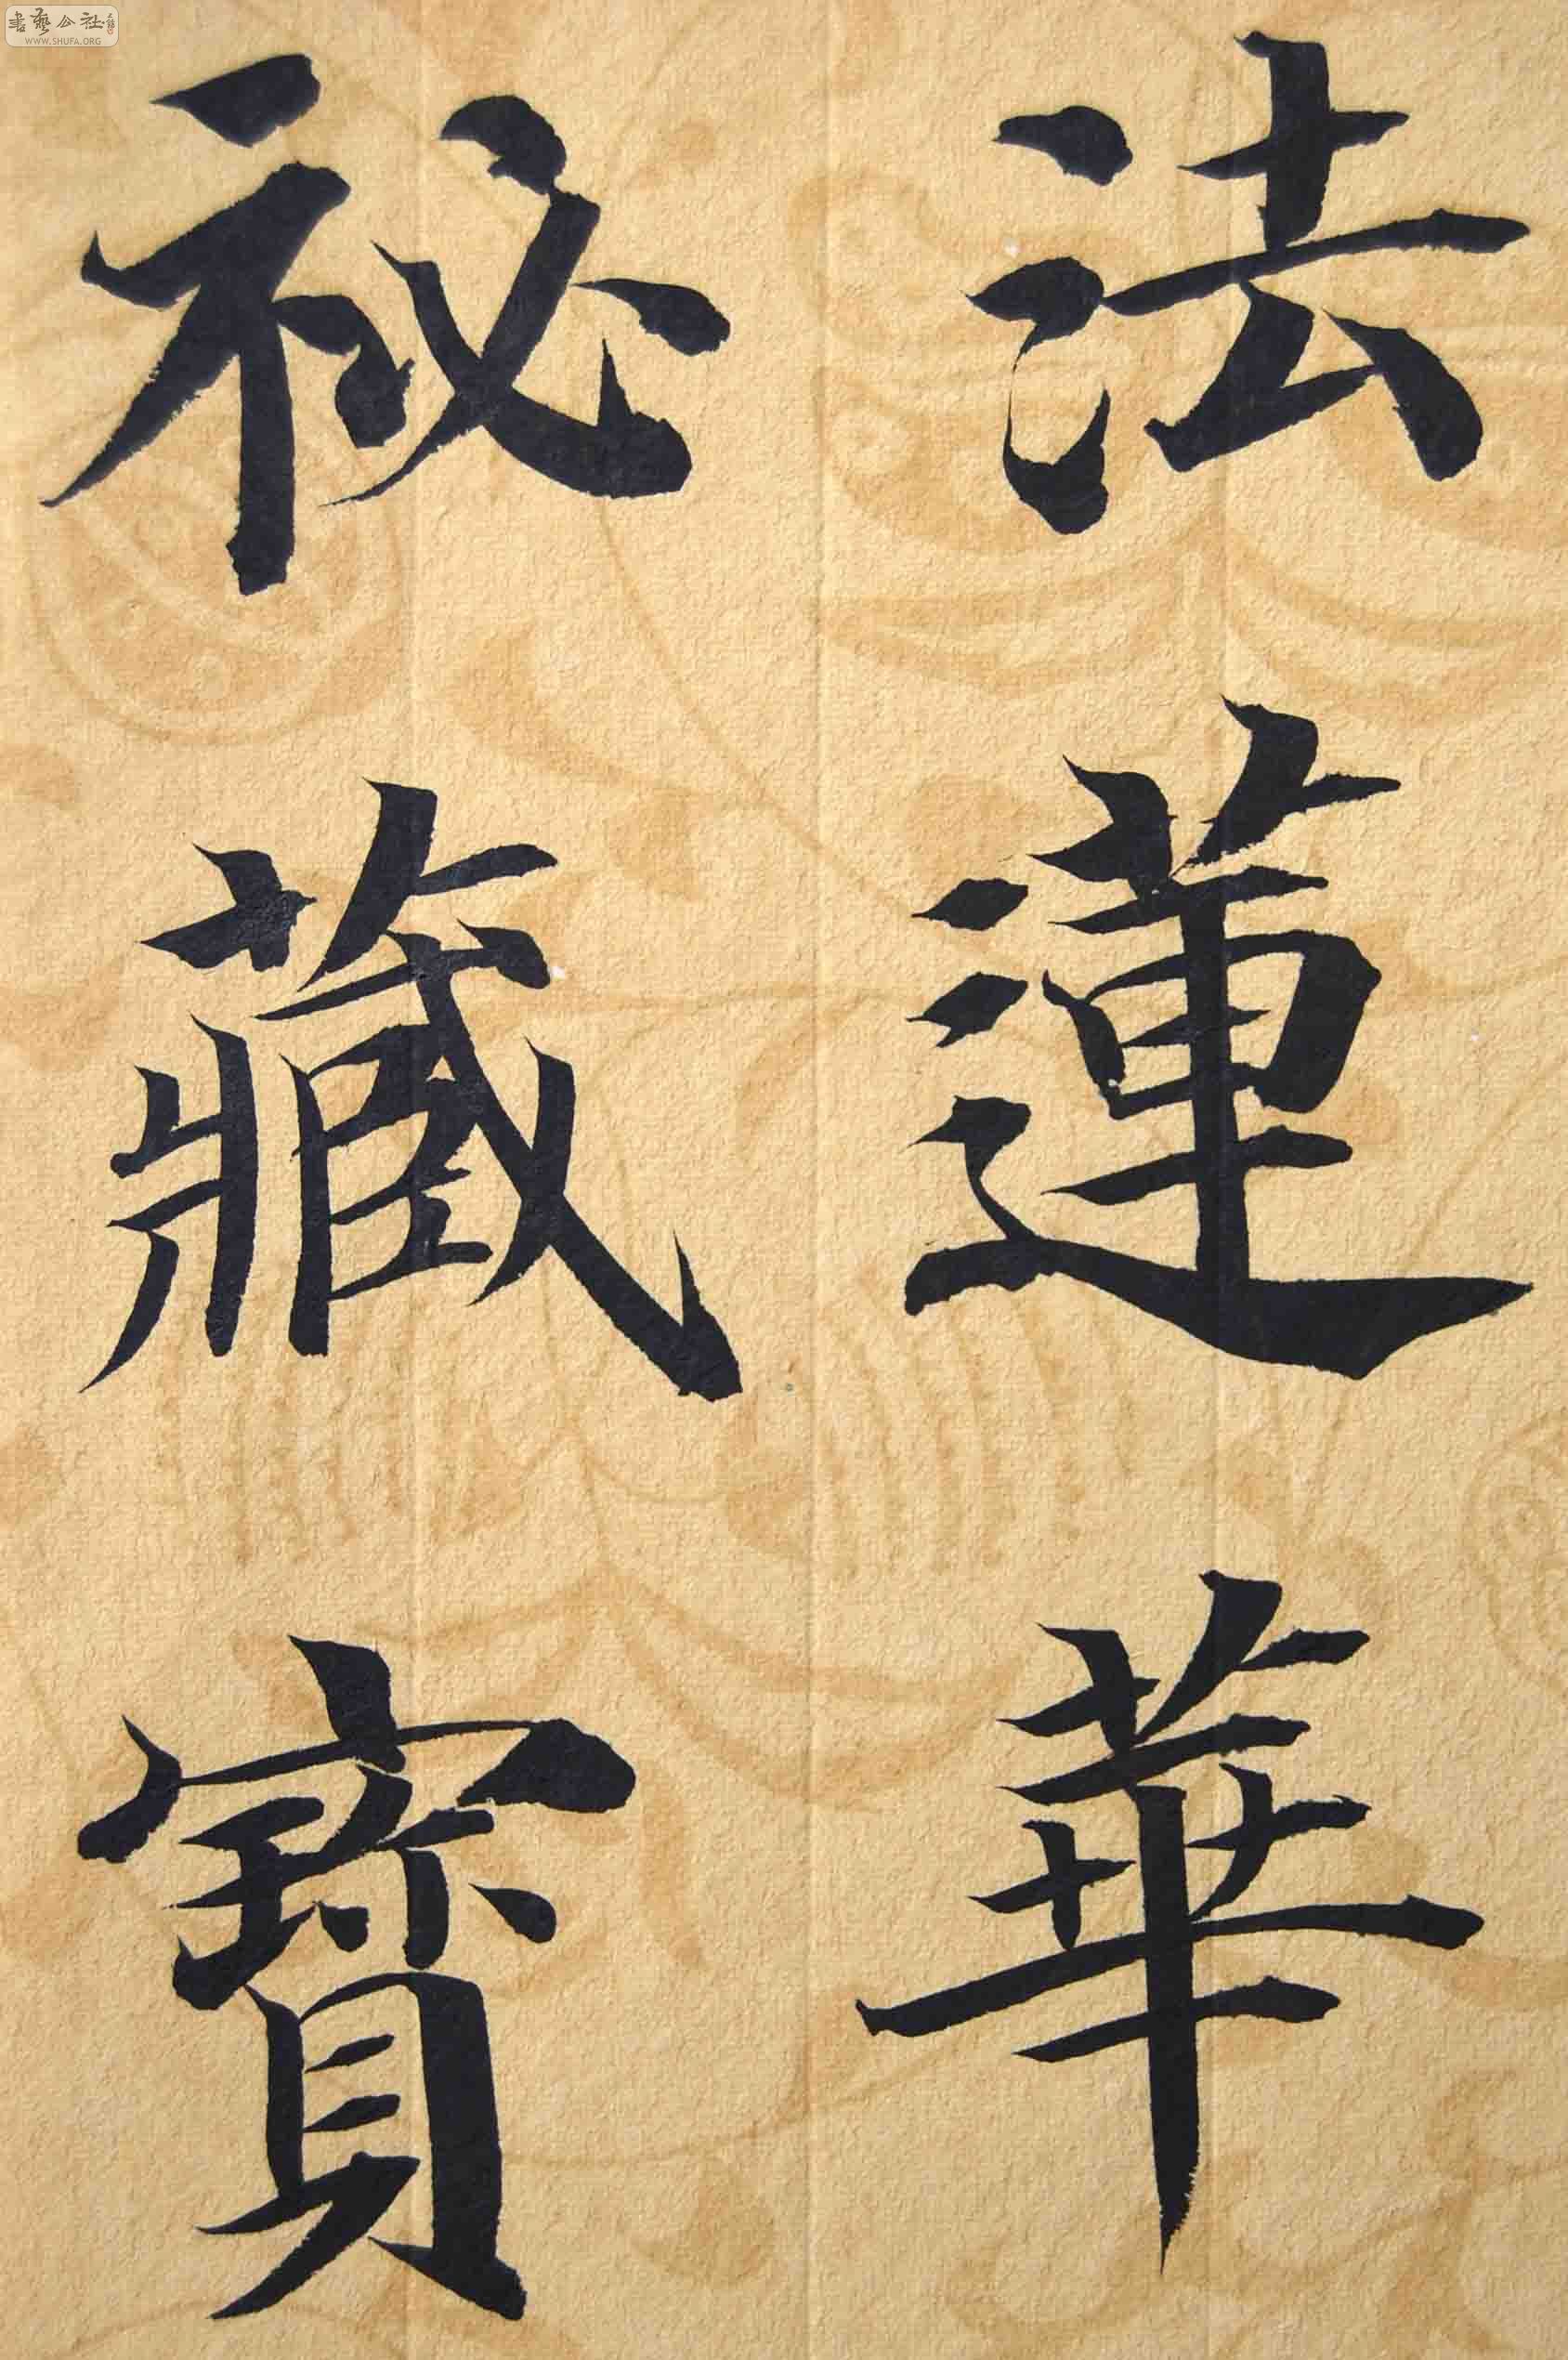 法蓮華
祕藏寶
書藝公社
WWW.SHUFA.ORG